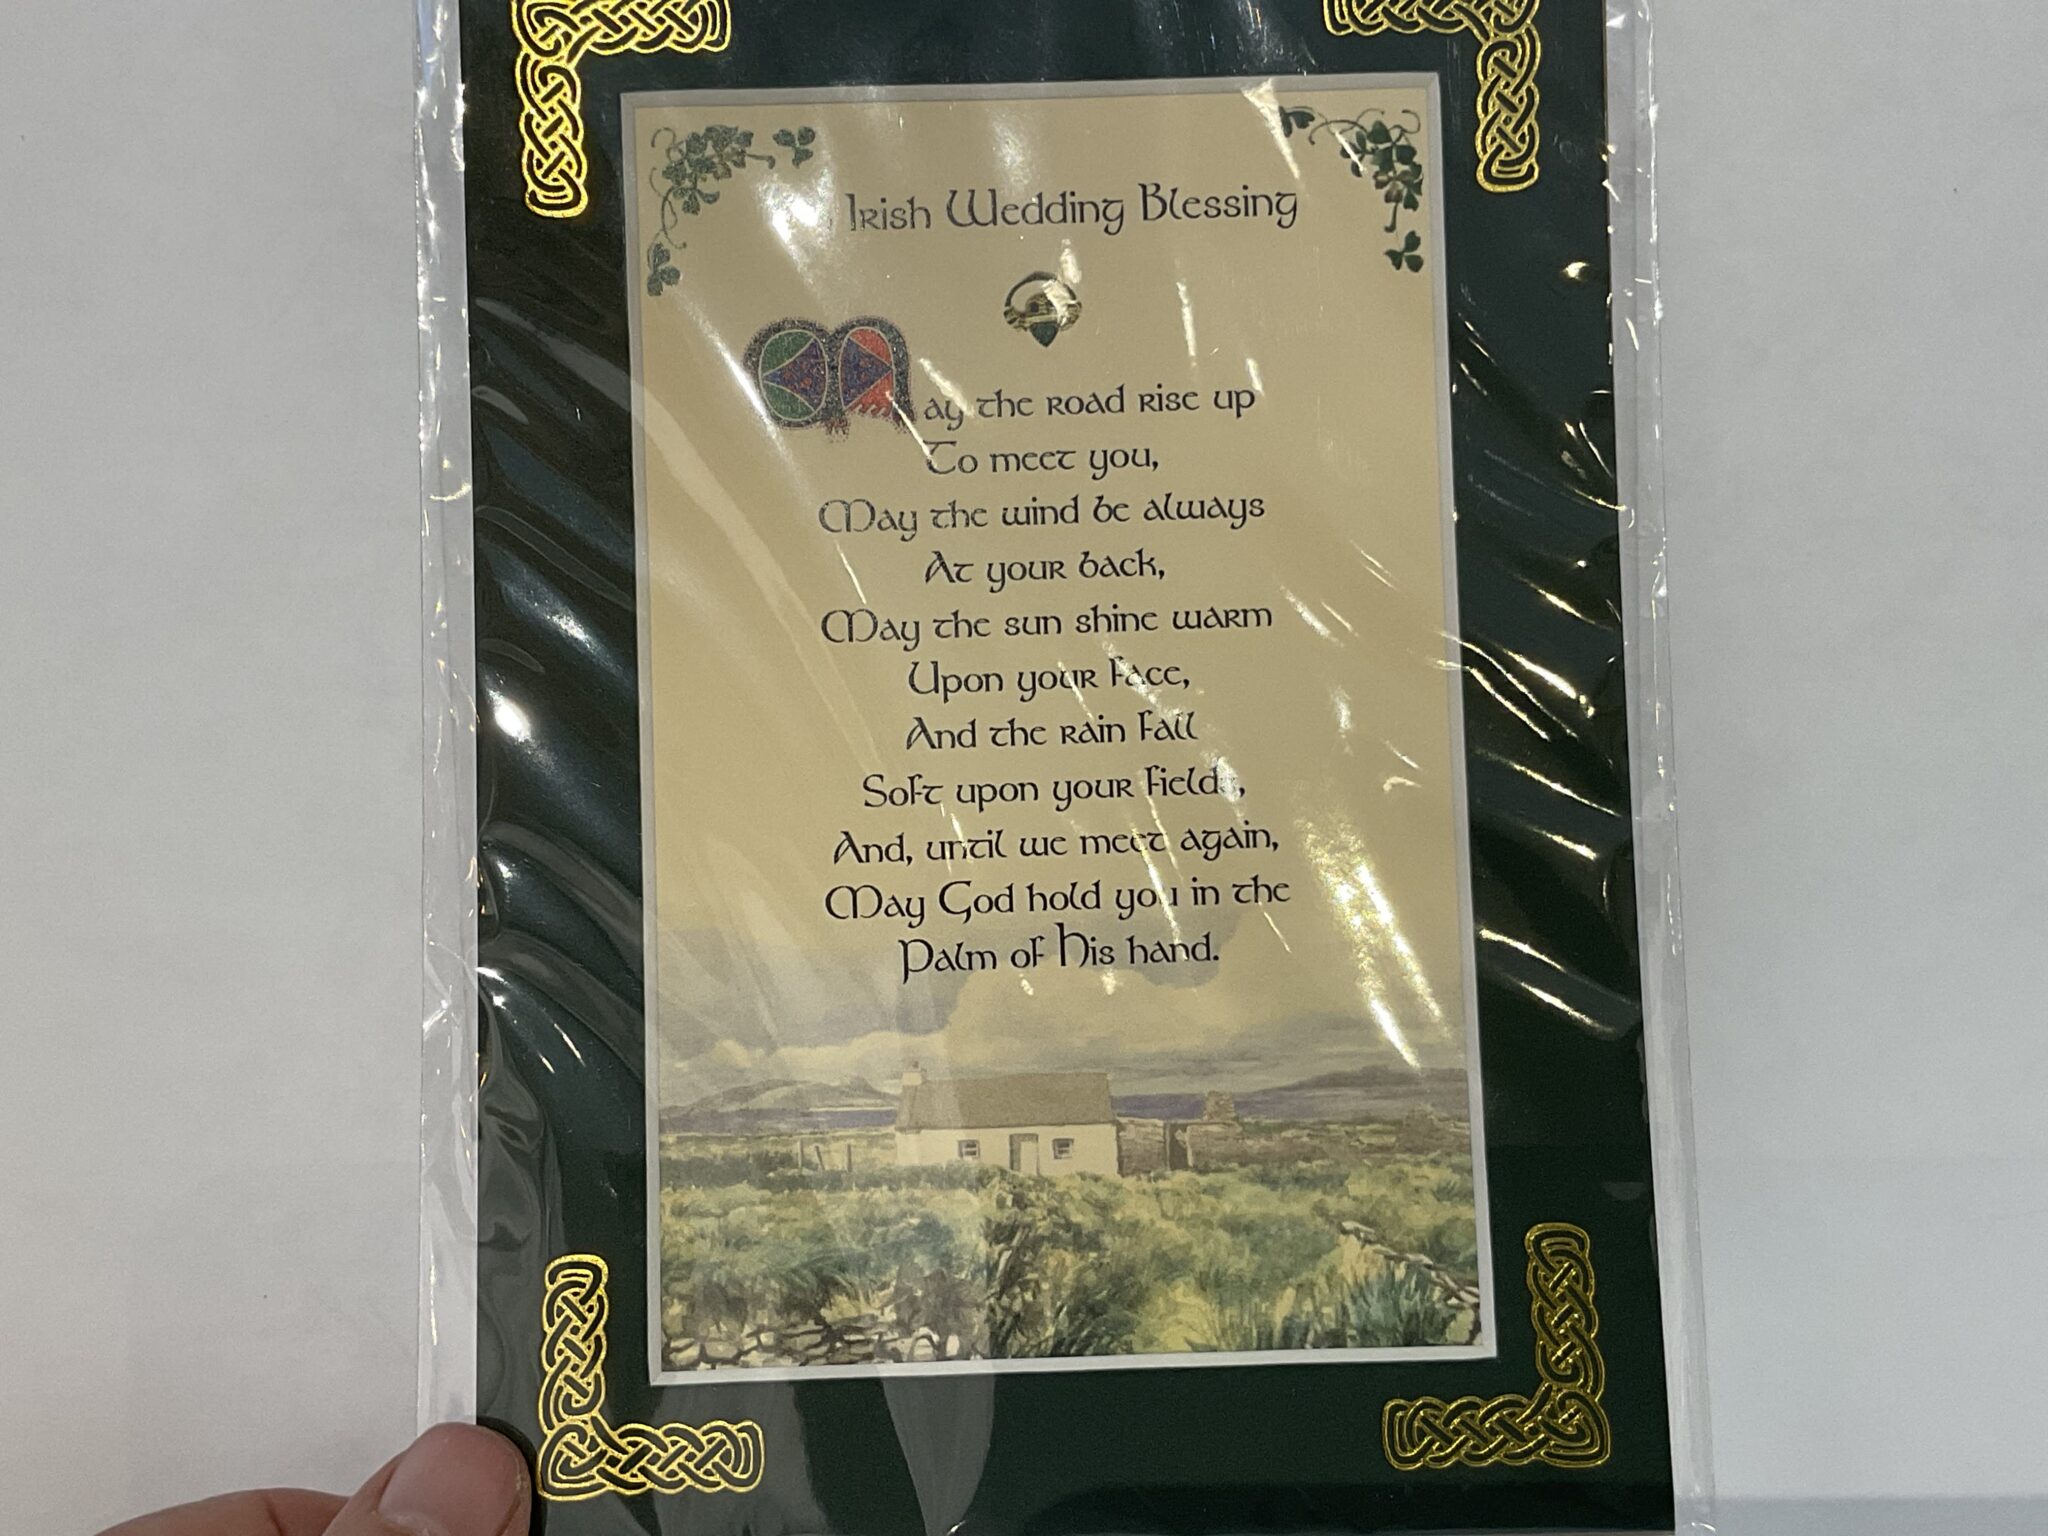 Irish Wedding Blessing
May the road rise up
To meet you,
May the wind be always
At your back,
May the sun shine warm
Upon your face,
And the rain fall
Soft upon your fields,
And, until we meet again,
May God hold you in the
Palm of His hand.